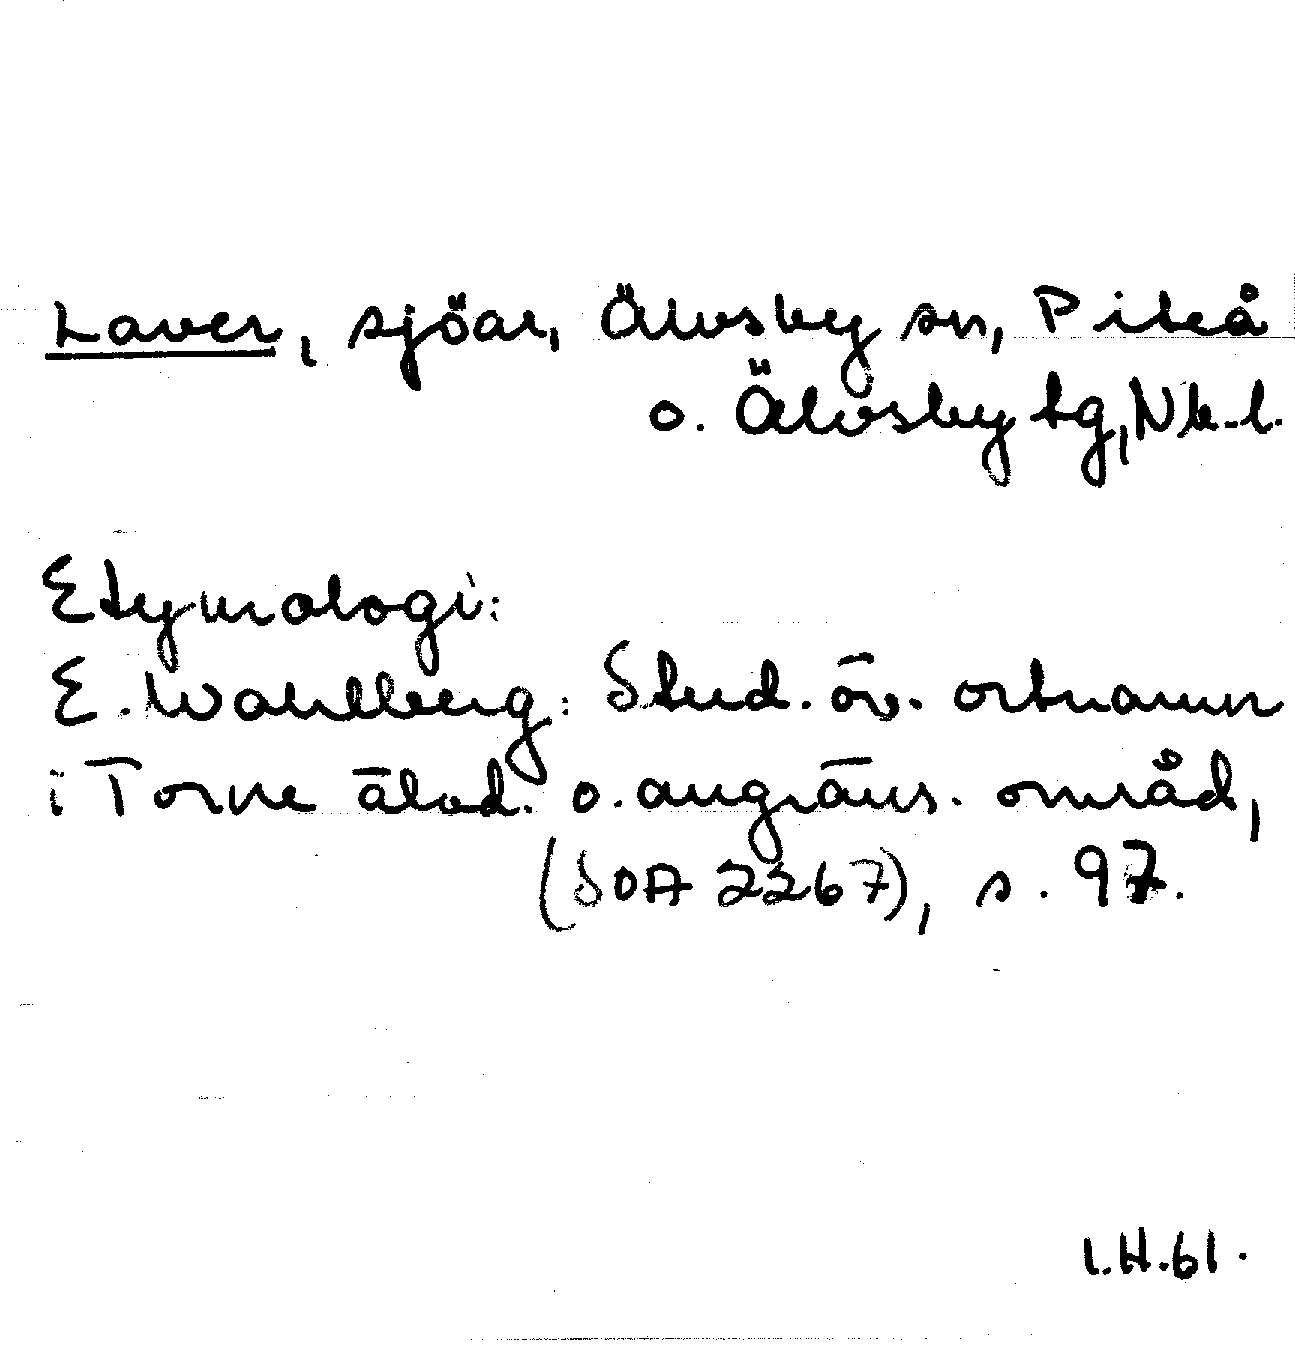 Laver, sjöar, Älvsby sn, Piteå
o. Älvsby tg, Nb. l.
Etymologi:
E. Wahlberg: Stud. öv. ortnamn
i Torne älvd. o. angräns. områd,
(SOA 2267), s. 97.
I.H.61.